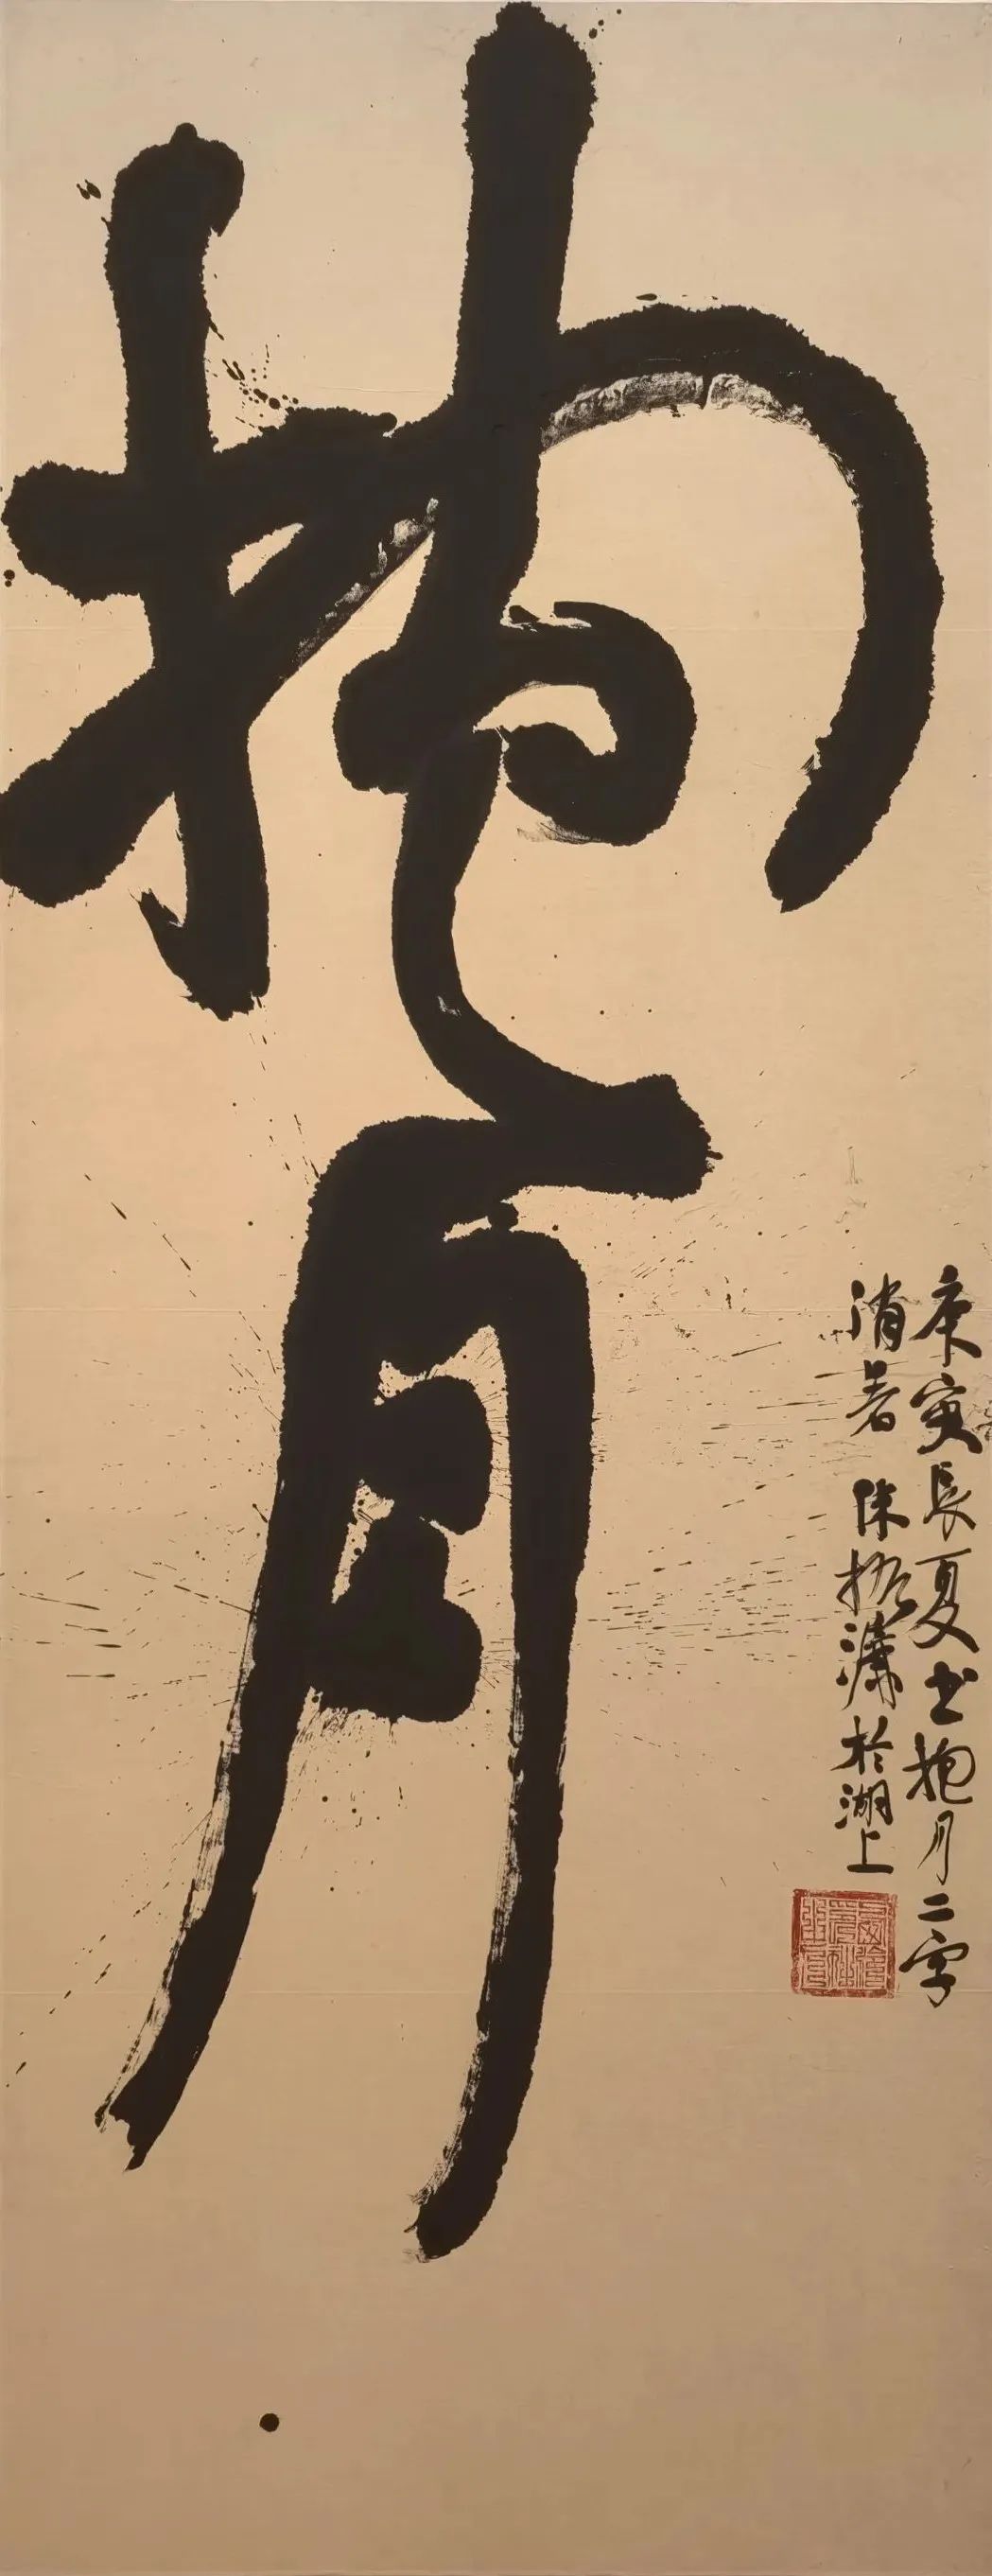 抱月
庚寅長夏書抱月二字
消暑 徐振濂於湖上